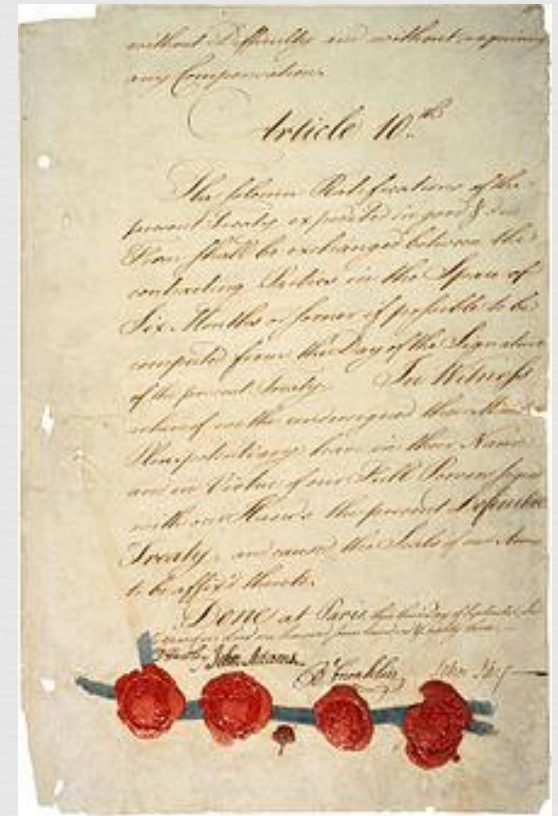 without Difficulty and without requiring
any Compensation.
Article 10.th
The solemn Ratifications of the
present Treaty expedited in good & due
Form shall be exchanged between the
contracting Parties in the Space of
Six Months or sooner if possible to be
computed from the Day of the Signature
of the present Treaty. In Witness
whereof we the undersigned their
Plenipotentiary have in their Name
and in Virtue of our Full Powers sign
with our Hands the present Definitive
Treaty, and caused the Seals of our Arms
to be affix'd thereto.
Done at Paris, this third Day of September In
D Hartley John Adams B Franklin John Jay